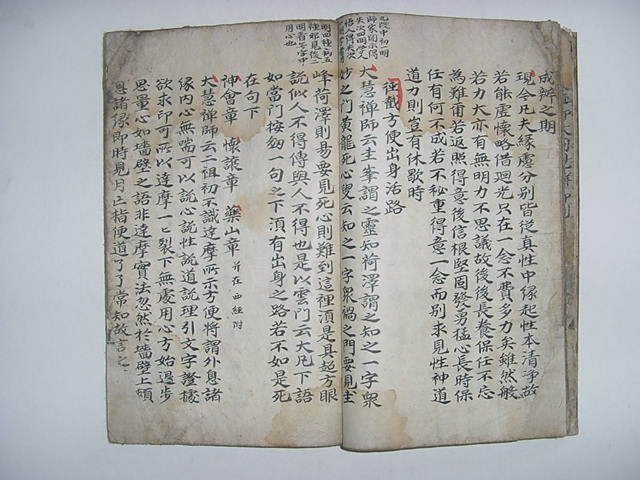 成辦之期
現今凡夫緣慮分別皆從真性中緣起性本清淨故
若能虛懷略借迴光只在一念不費多力矣雖然般
若力大亦有無明力不思議故後後長養保任不忘
為難甫若返照得意後信根堅固發勇猛心長時保
任有何不成若不秘重得意一念而別求見性神道
道力則豈有休歇時
往截方便出身活路
大慧禪師云圭峯謂之靈知荷澤謂之知之一字衆
妙之門黃龍死心叟云知之一字衆禍之門要見圭
峰荷澤則易要見死心則難到這裡須是具超方眼
說似人不得傳與人不得也是以雲門云大凡下語
如當門按劒一句之下須有出身之路若不如是死
在句下
神會章 懷讓章 藥山章 并在
大慧禪師云二祖初不識達摩所示方便將謂外息諸
緣內心無喘可以說心說性說道說理引文字證據
欲求印可所以達摩一一裂下無處用心方始退步
思量心如墻壁之語非達摩實法忽然於墻壁上頓
息諸緣即時見月亡指便道了了常知故言之